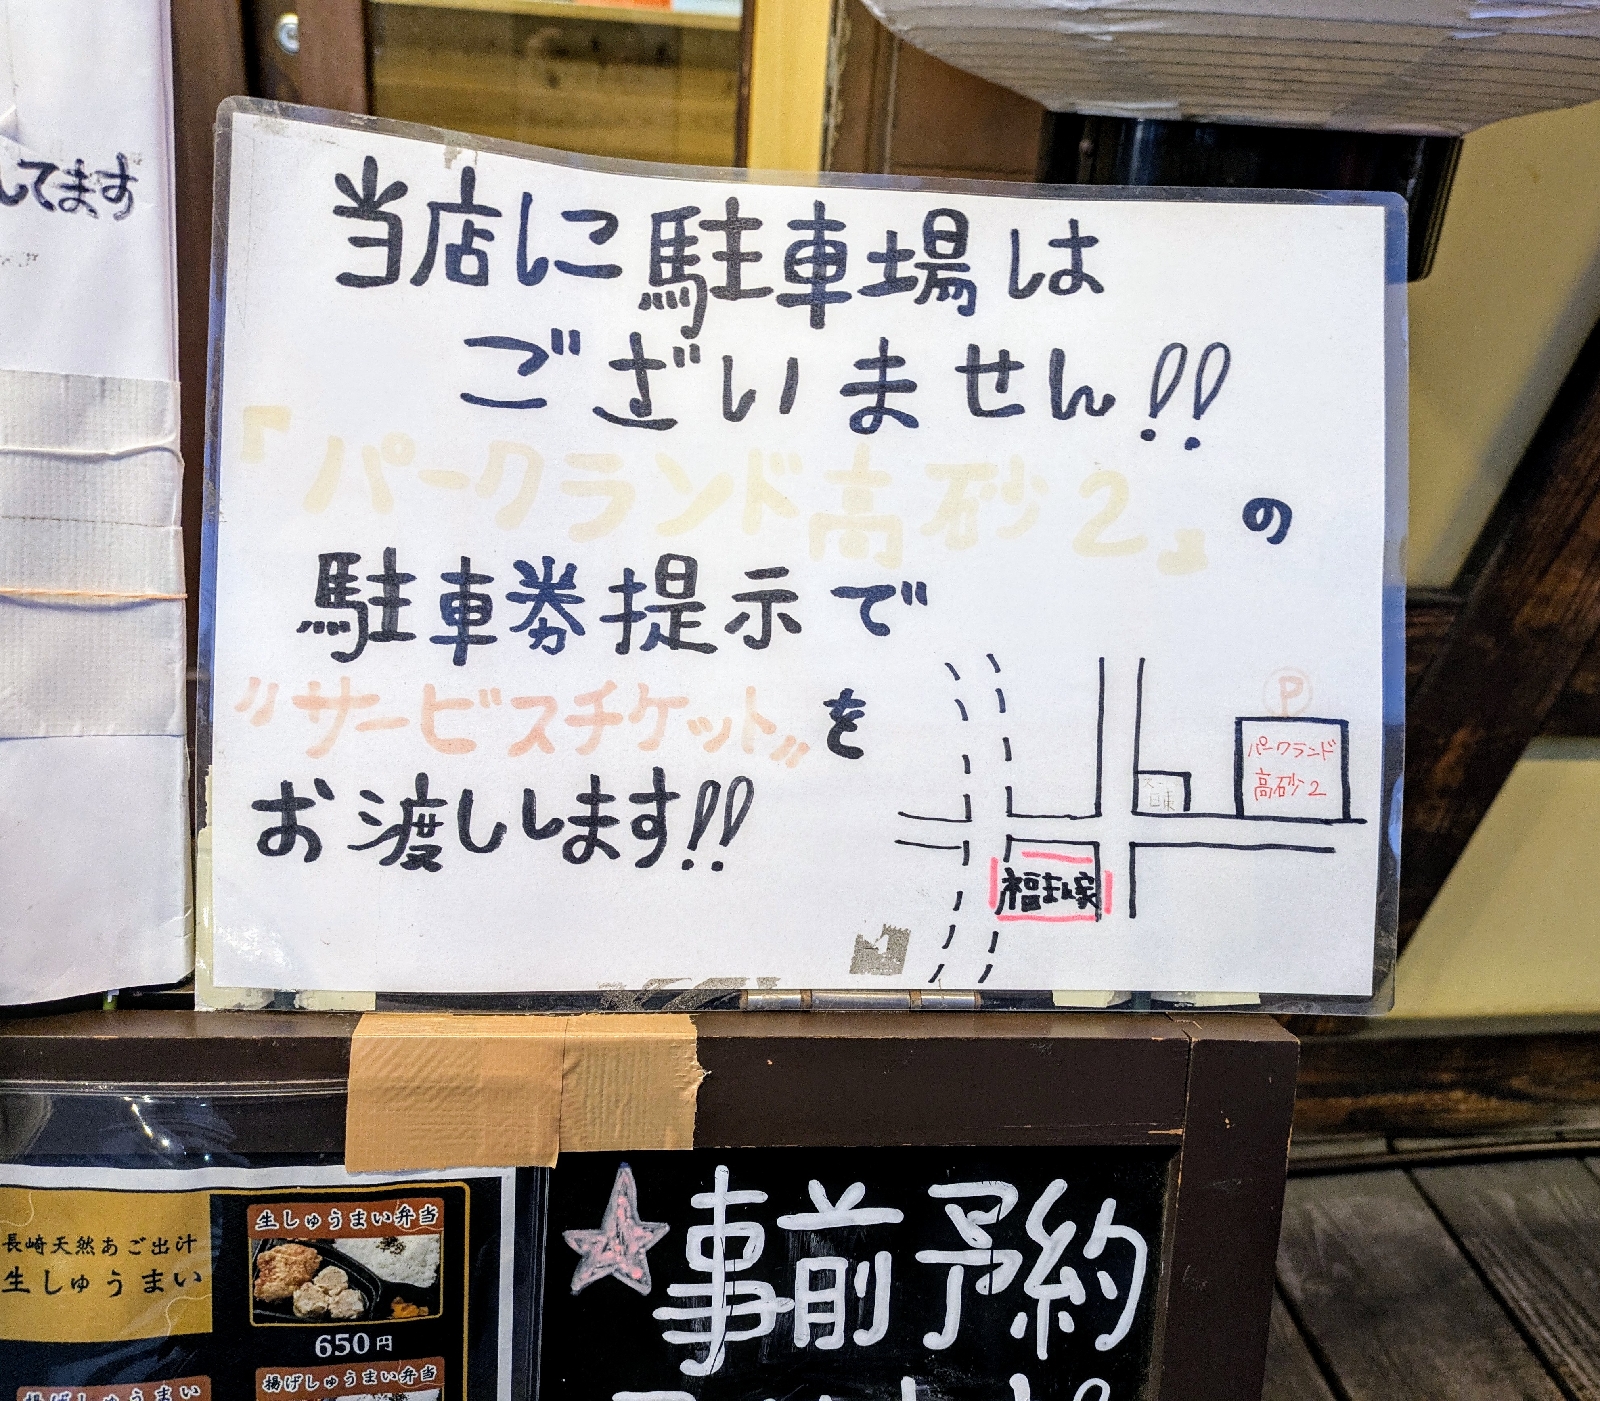 してます
当店に駐車場は
ございません!!
『パークランド高砂2』の
駐車券提示で
"サービスチケット"を
お渡しします!!
P
パークランド
高砂2
福まん家
★事前予約
長崎天然あご出汁
生しゅうまい
生しゅうまい弁当
650円
揚げしゅうまい
揚げしゅうまい弁当